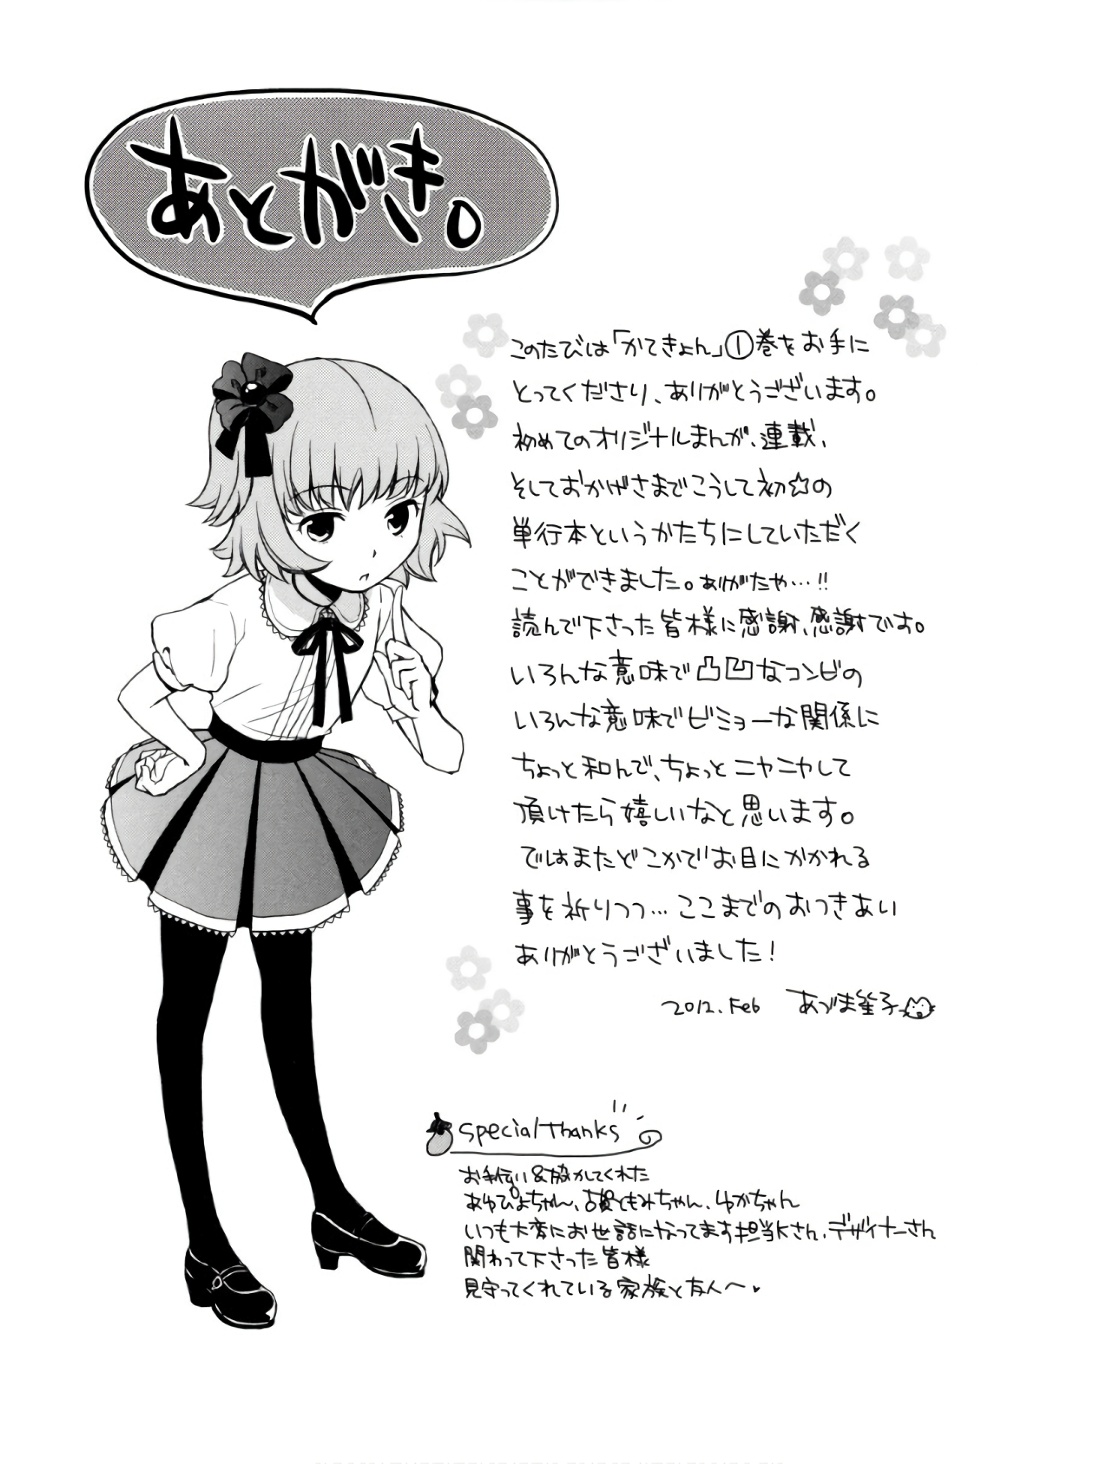 あとがき。
このたびは「かてきょん」①巻をお手に
とってくださり、ありがとうございます。
初めてのオリジナルまんが、連載、
そしておかげさまでこうして初☆の
単行本というかたちにしていただく
ことができました。ありがたや…!!
読んで下さった皆様に感謝、感謝です。
いろんな意味で凸凹なコンビの
いろんな意味でビミョーな関係に
ちょっと和んで、ちょっとニヤニヤして
頂けたら嬉しいなと思います。
ではまたどこかでお目にかかれる
事を祈りつつ…ここまでのおつきあい
ありがとうございました!
2012.Feb あづま笙子
special thanks
お手伝い&励かしてくれた
あゆぴよちゃん、ともみちゃん、ゆかちゃん
いつも大変にお世話になってます担当Kさん、デザイナーさん
関わって下さった皆様
見守ってくれている家族と友人〜♥